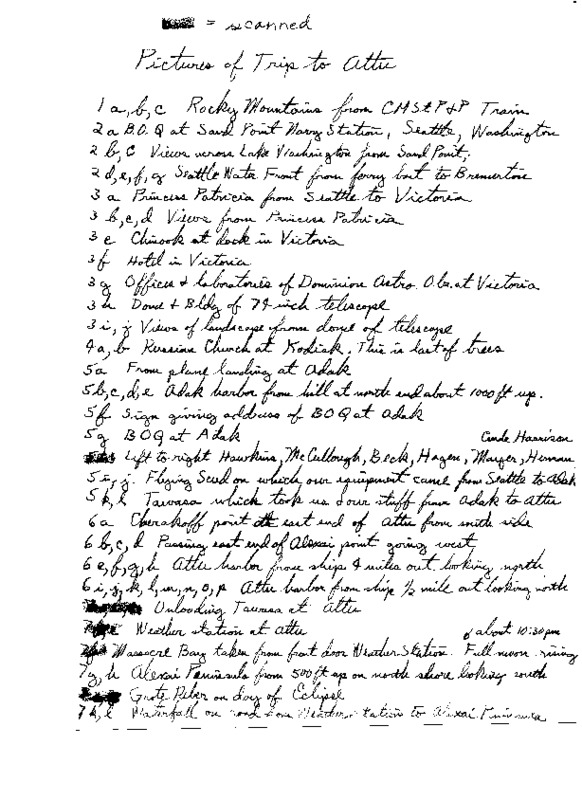 = scanned
Pictures of Trip to Attu
1 a, b, c Rocky Mountains from CMStP&P Train
2 a B.O.Q at Sand Point Navy Station, Seattle, Washington
2 b, c Views across Lake Washington from Sand Point,
2 d, e, f, g Seattle Water Front from ferry boat to Bremerton
3 a Princess Patricia from Seattle to Victoria
3 b, c, d Views from Princess Patricia
3 e Chinook at dock in Victoria
3 f Hotel in Victoria
3 g Offices & laboratories of Dominion Astro. Obs. at Victoria
3 h Dome & Bldg of 74-inch telescope
3 i, j Views of landscape from dome of telescope
4 a, b Russian Church at Kodiak. This is last of trees
5 a From plane landing at Adak
5 b, c, d, e Adak harbor from hill at north end about 1000 ft up.
5 f Sign giving address of BOQ at Adak
5 g BOQ at Adak
Left to right Hawkins, McCullough, Beck, Hagen, Mauger, Herman
Harrison
5 i, j. Flying Scud on which our equipment came from Seattle to Adak
5 k, l Tawasa which took us & our stuff from Adak to Attu
6 a point east end of Attu from south side
6 b, c, d Passing east end of Alexai point going west
6 e, f, g, h Attu harbor from ship 4 miles out looking north
6 i, j, k, l, m, n, o, p Attu harbor from ship 1/2 mile out looking north
Unloading Tawasa at Attu
Weather station at Attu
Massacre Bay taken from front door Weather Station. Full moon rising
about 10:30pm
7 g, h Alexai Peninsula from 500 ft up on north shore looking south
Grote Reber on day of Eclipse
7 k, l Waterfall on road from Weather station to Alexai Peninsula